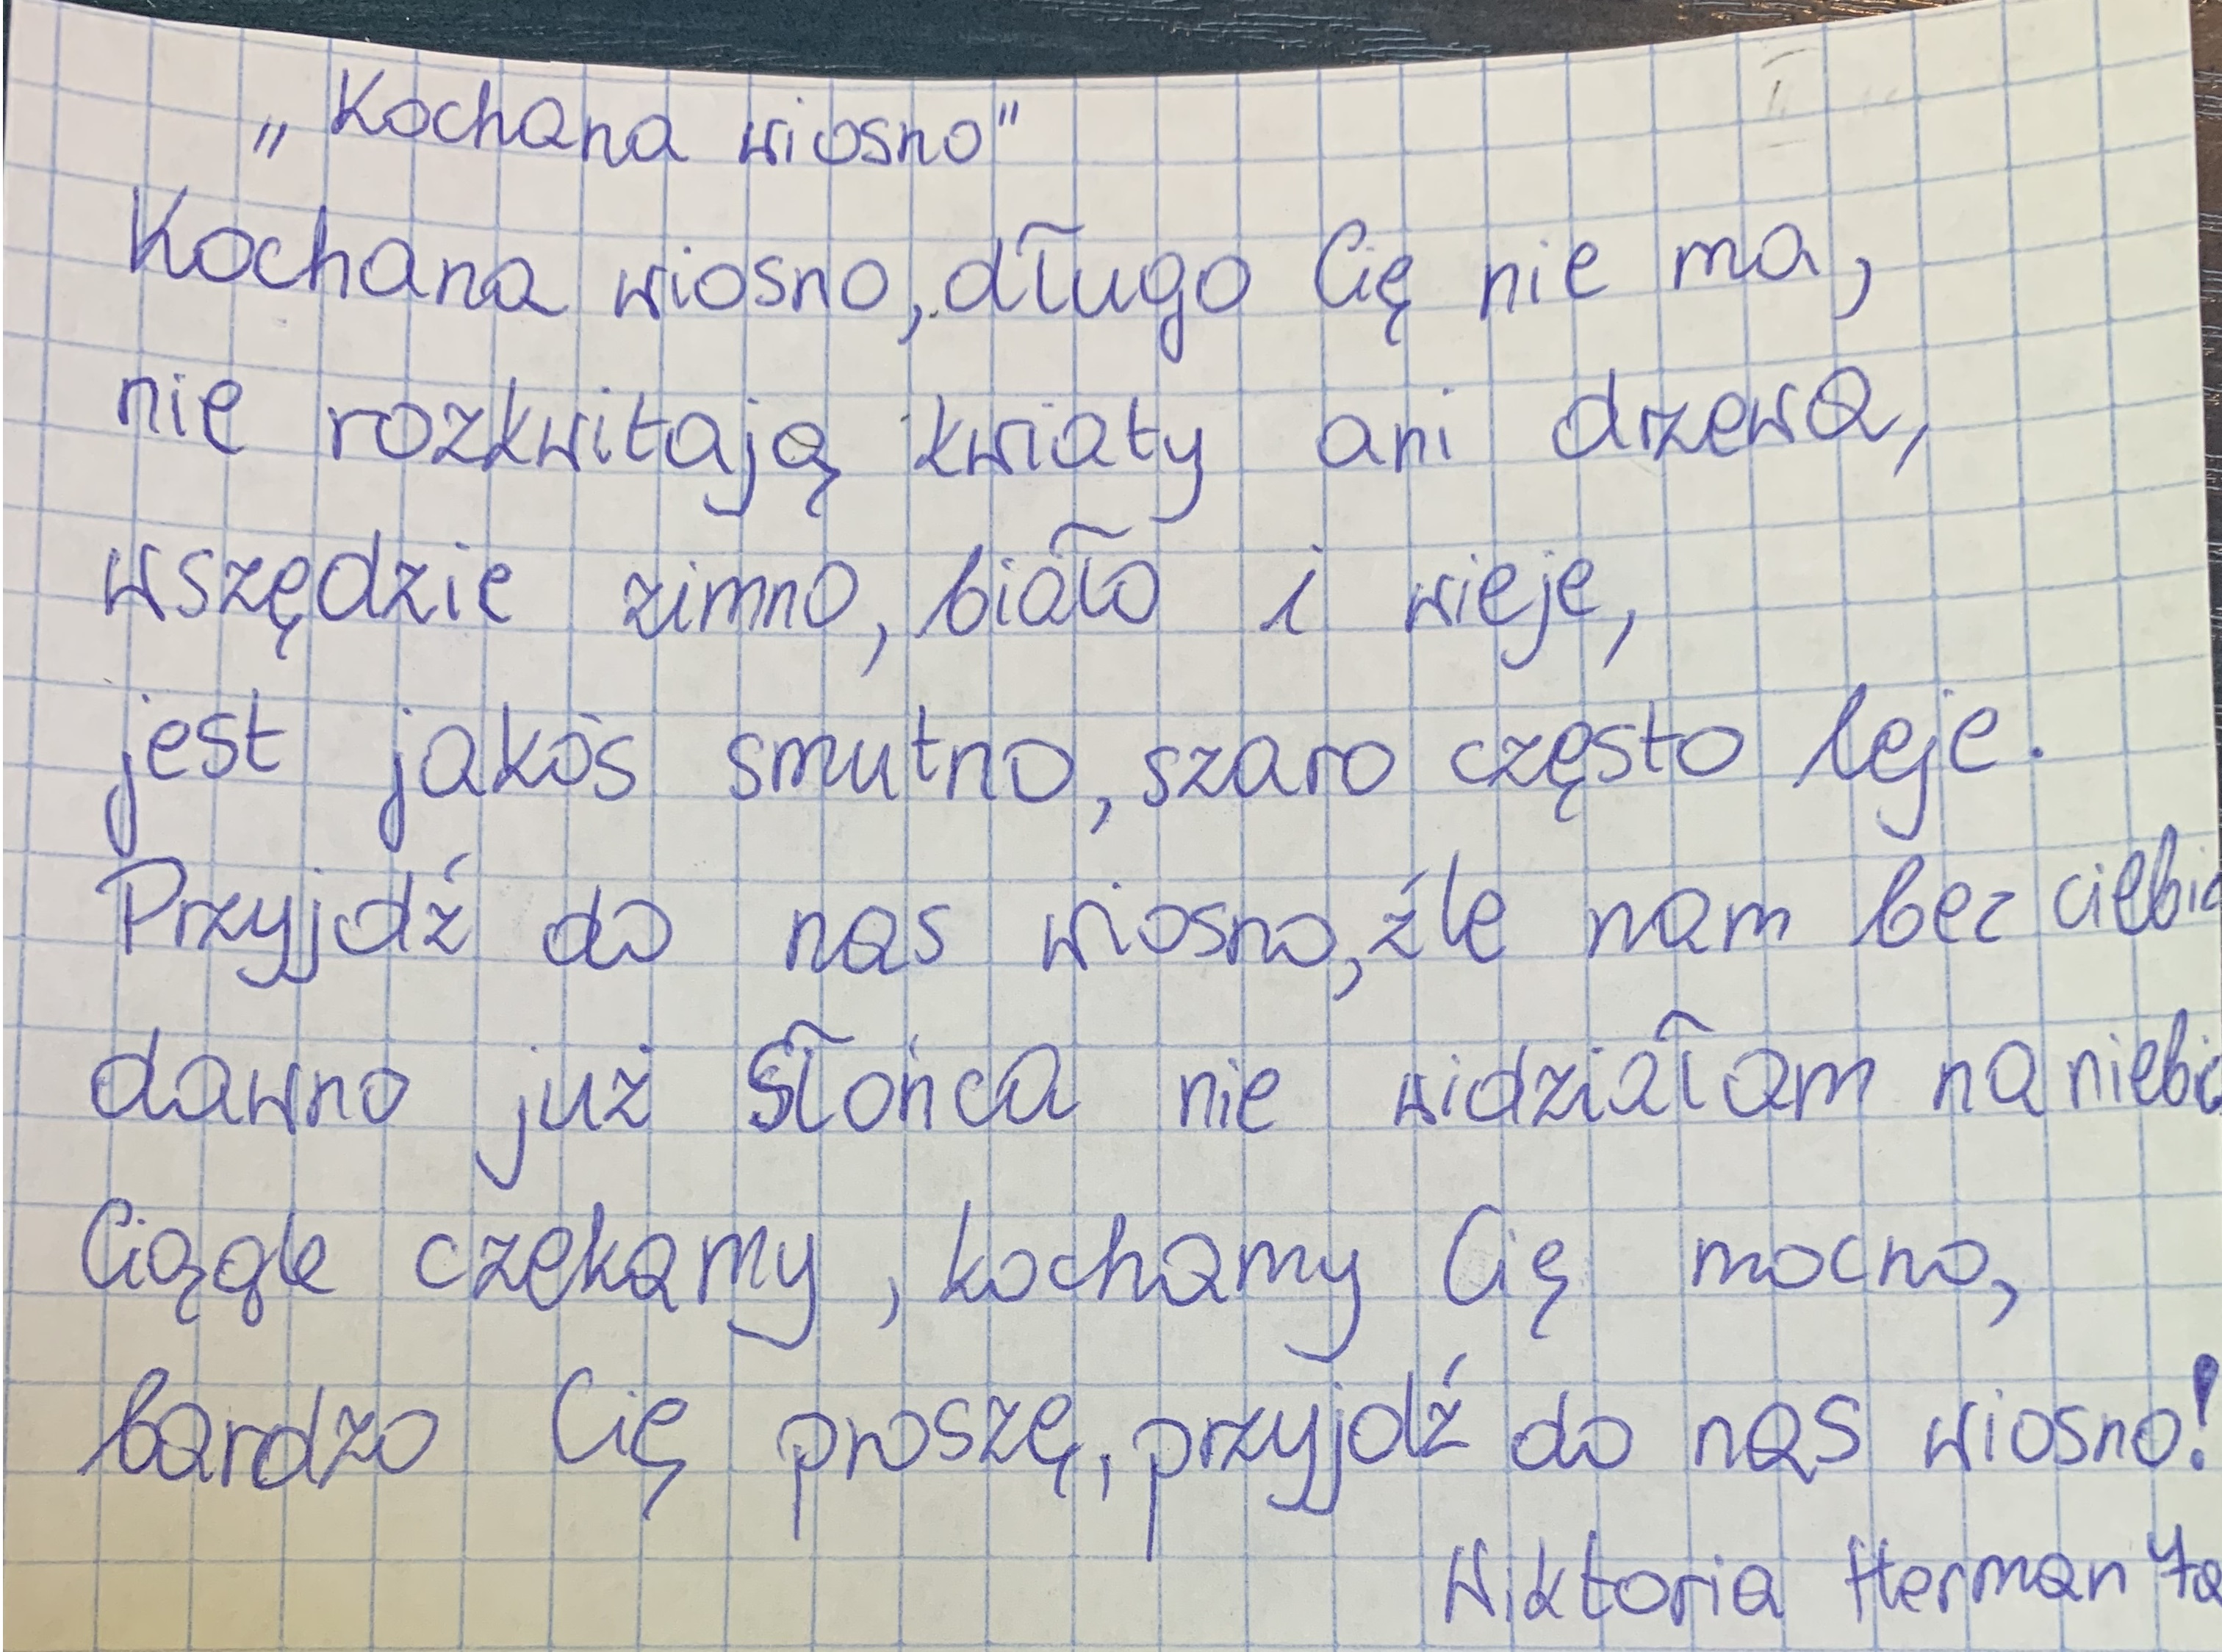 „Kochana wiosno"
Kochana wiosno, długo Cię nie ma,
nie rozkwitają kwiaty ani drzewa,
wszędzie zimno, biało i wieje,
jest jakoś smutno, szaro często leje.
Przyjdź do nas wiosno, źle nam bez ciebie
dawno już Słońca nie widziałam na niebie
Ciągle czekamy, kochamy Cię mocno,
bardzo Cię proszę, przyjdź do nas wiosno!
Wiktoria Herman